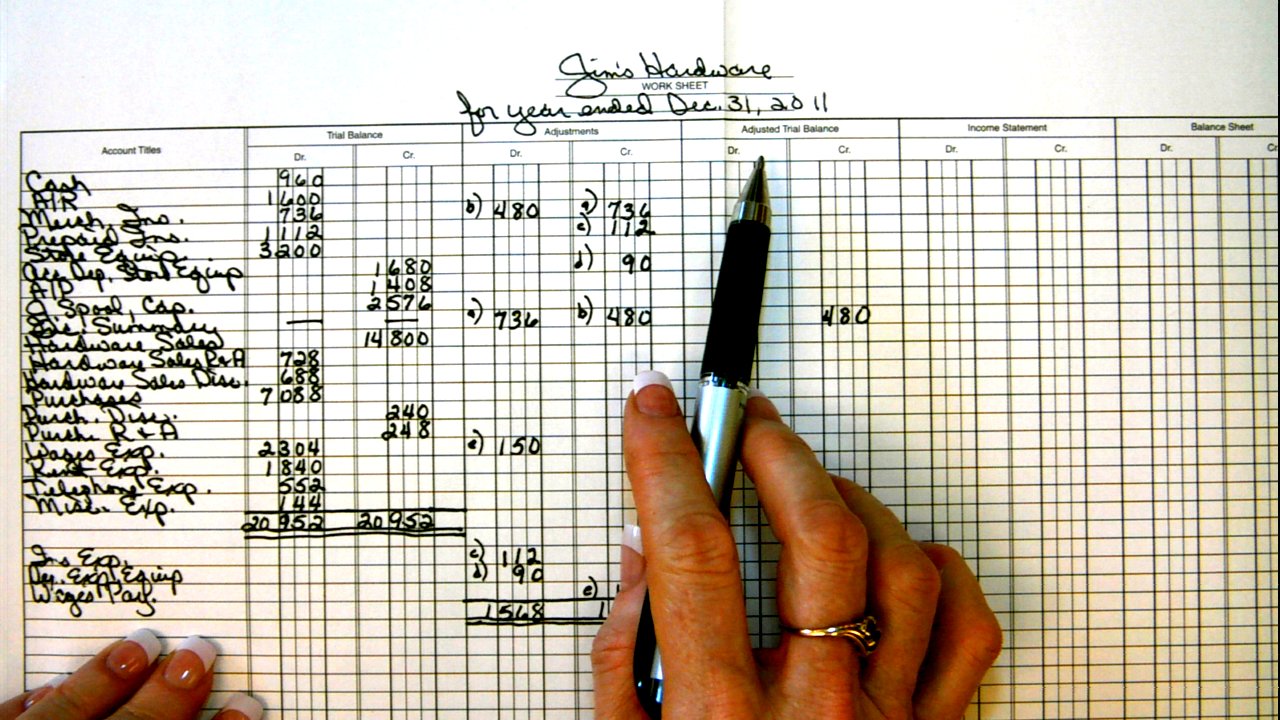 Jim's Hardware
WORK SHEET
for year ended Dec. 31, 2011
Account Titles Trial Balance Adjustments Adjusted Trial Balance Income Statement Balance Sheet
Dr. Cr. Dr. Cr. Dr. Cr. Dr. Cr. Dr. Cr
Cash 960
A/R 1600
Merch. Inv. 736 b) 480 a) 736
Prepaid Ins. 1112 c) 112
Store Equip. 3200
Acc. Dep. Store Equip 1680 d) 90
A/P 1408
O. Spool, Cap. 2576
Inc. Summary — — a) 736 b) 480 480
Hardware Sales 14800
Hardware Sales R+A 728
Hardware Sales Disc. 688
Purchases 7088
Purch. Disc. 240
Purch. R + A 248
Wages Exp. 2304 e) 150
Rent Exp. 1840
Telephone Exp. 552
Misc. Exp. 144
20952 20952
Ins Exp. c) 112
Dep. Exp. Equip d) 90
Wages Pay. e)
1568